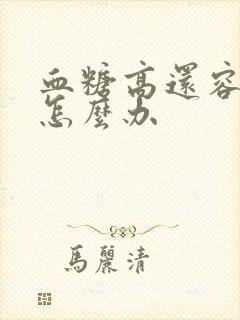 血糖高還容
怎麼办
馬麗清